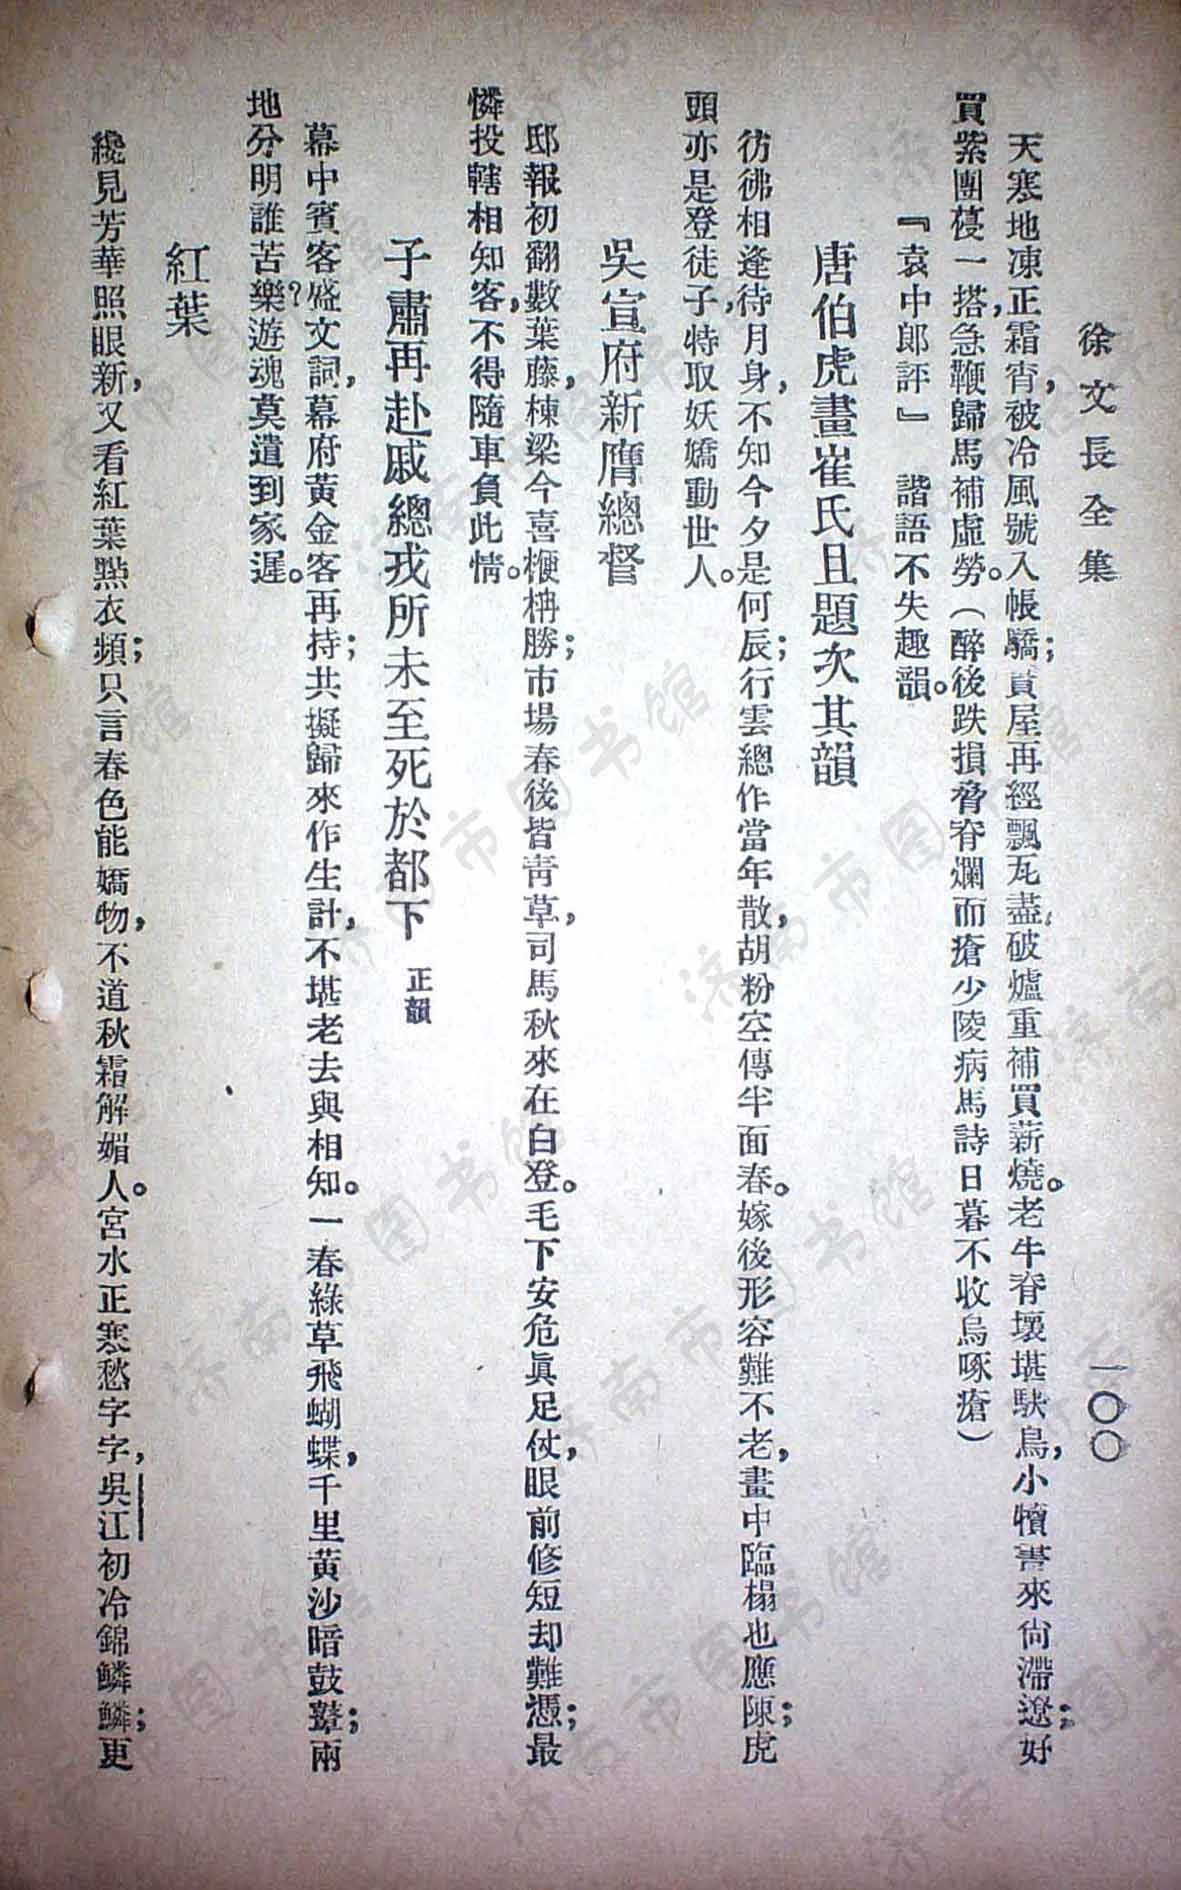 徐文長全集
一〇〇
天寒地凍正霜宵，被冷風號入帳驕；貰屋再經飄瓦盡，破爐重補買薪燒。老牛脊壞堪馱鳥，小犢書來尙滯遼；好
買紫團葠一搭，急鞭歸馬補虛勞。（醉後跌損脅脊爛而瘡少陵病馬詩日暮不收烏啄瘡）
『袁中郎評』　諧語不失趣韻。
唐伯虎畫崔氏且題次其韻
彷彿相逢待月身，不知今夕是何辰；行雲總作當年散，胡粉空傳半面春。嫁後形容難不老，畫中臨榻也應陳；虎
頭亦是登徒子，特取妖嬌動世人。
吳宣府新膺總督
邸報初翻數葉藤，棟梁今喜楩柟勝；市場春後皆靑草，司馬秋來在白登。毛下安危眞足仗，眼前修短却難憑；最
憐投轄相知客，不得隨車負此情。
子肅再赴戚總戎所未至死於都下　正韻
幕中賓客盛文詞，幕府黃金客再持；共擬歸來作生計，不堪老去與相知。一春綠草飛蝴蝶，千里黃沙暗鼓鼙；兩
地分明誰苦樂？遊魂莫遣到家遲。
紅葉
纔見芳華照眼新，又看紅葉點衣頻；只言春色能嬌物，不道秋霜解媚人。宮水正寒愁字字，吳江初冷錦鱗鱗；更